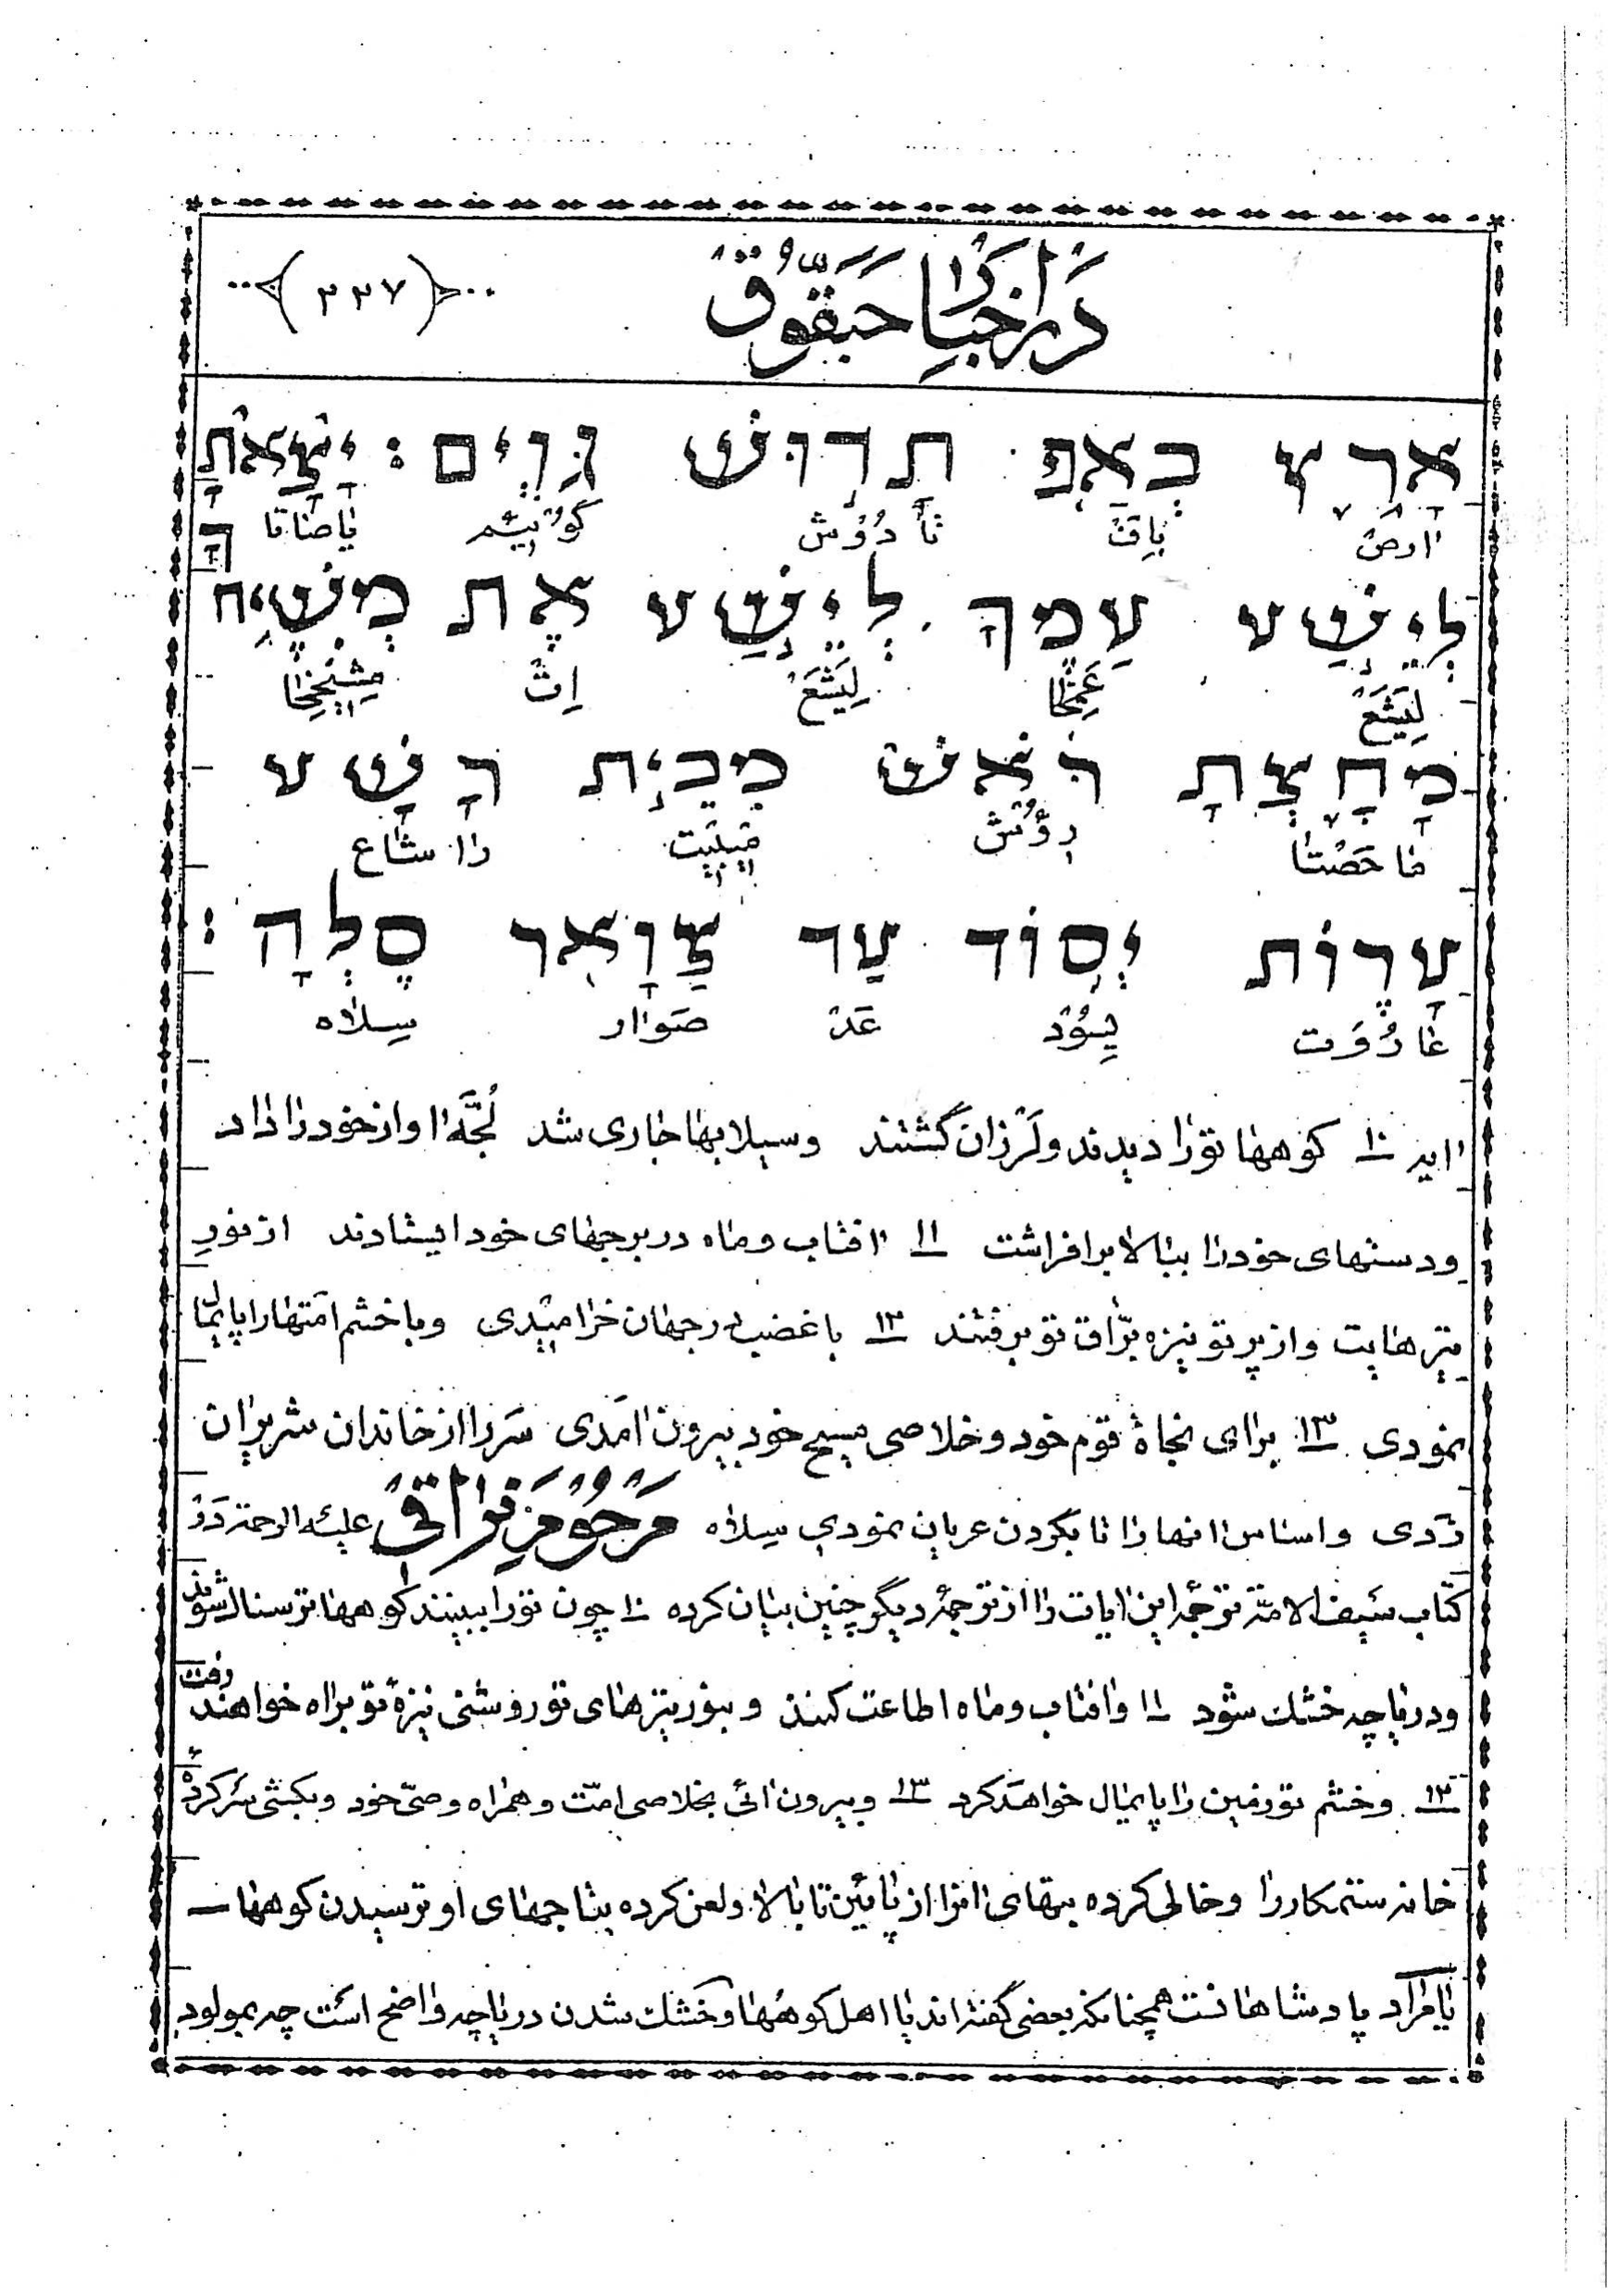 در اخبار حبقوق
(۲۲۷)
אֶרֶץ בְּאַף תָּדוּשׁ גּוֹיִם: יָצָאתָ
اارص باف تادوش گوئیم یاصاتا
לְיֵשַׁע עַמֶּךָ לְיֵשַׁע אֶת מְשִׁיחֶ ךָ
لیشع عمخا لیشع اث مشیخخا
מָחַצְתָּ רֹאשׁ מִבֵּית רָשָׁע
ماحصتا رؤش میبیت راشاع
עָרוֹת יְסוֹד עַד צַוָּאר סֶלָה:
عاروت یسود عد صواار سلاه
اید ۱۰ کوهها تو را دیدند و لرزان گشتند وسیلابها جاری شد لجّه اواز خود را داد
ودستهای خود را ببالا برافراشت ۱۱ افتاب و ماه در برجهای خود ایستادند از نور
تیرهایت واز پرتو نیزه برّاق تو برفتند ۱۲ با غضب در جهان خرامیدی وبا خشم امتها را پایمال
نمودی ۱۳ برای نجاة قوم خود و خلاصی مسیح خود بیرون امدی سر را از خاندان شریران
زدی واساس انها را تا بگردن عریان نمودی سلاه مرحوم نراقی علیه الرحمة در
کتاب سیف الامة ترجمه این ایات را از ترجمه دیگر چنین بیان کرده ۱۰ چون تو را ببینند کوهها ترسناک شوند
ودریاچه خشک شود ۱۱ وافتاب وماه اطاعت کنند وبنور تیرهای تو روشنی نیزهٔ تو براه خواهند رفت
۱۲ وخشم تو زمین را پایمال خواهد کرد ۱۳ وبیرون ائی بخلاصی امّت وهمراه وصیّ خود وبکشی سرکردهٔ
خانه ستمکار را وخالی کرده بنهای انرا از پائین تا بالا ولعن کرده بتاجهای او ترسیدن کوهها
یا مراد پادشاهانست همچنانکه بعضی گفته اند یا اهل کوهها وخشک شدن دریاچه واضح است چه بمولود